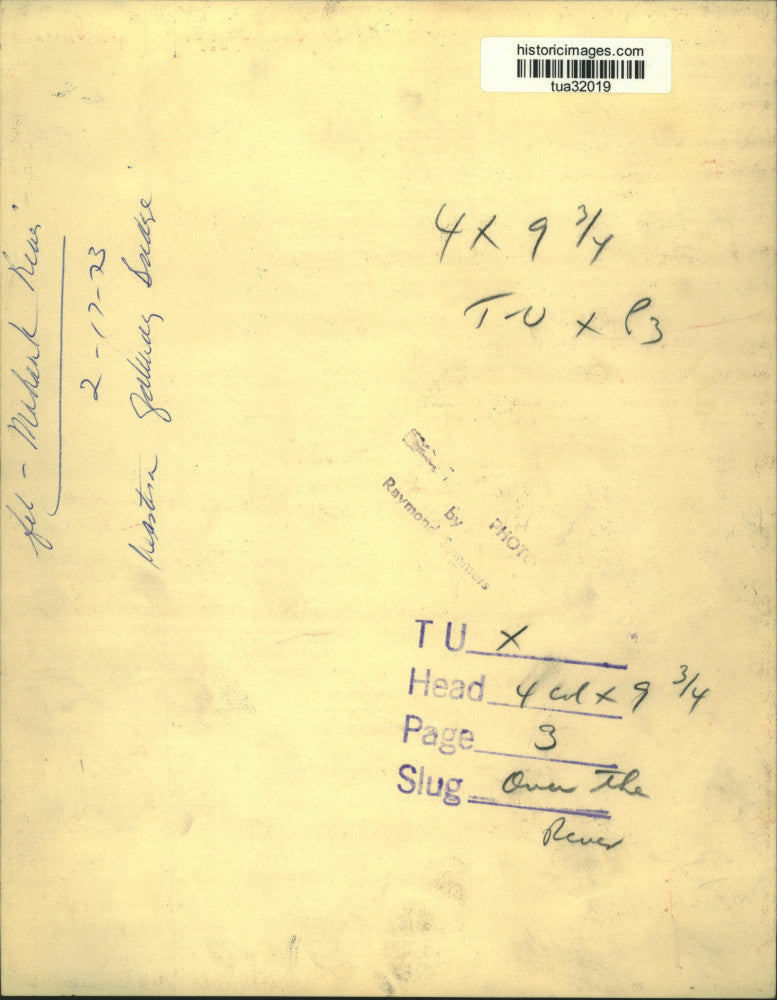 historicimages.com
tua32019
4 x 9 3/4
TU x P3
fel - Mohawk River
2-17-73
Western Gateway Bridge
PHOTO
by
Raymond Summers
TU X
Head 4 col x 9 3/4
Page 3
Slug Over the
River